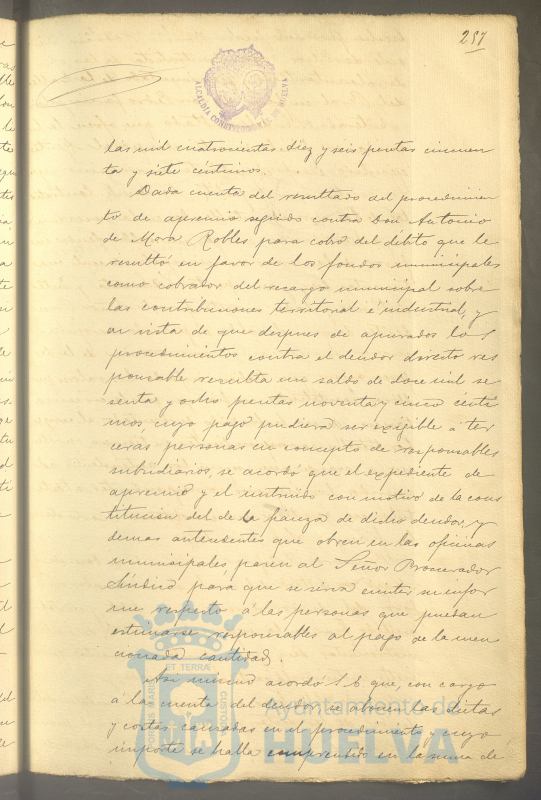 257
ALCALDÍA CONSTITUCIONAL DE HUELVA
las mil cuatrocientas diez y seis pesetas cincuen
ta y siete céntimos.
Dada cuenta del resultado del procedimien
to de apremio seguido contra Don Antonio
de Mora Robles para cobro del débito que le
resultó en favor de los fondos municipales
como cobrador del recargo municipal sobre
las contribuciones territorial é industrial, y
en vista de que despues de apurados los
procedimientos contra el deudor directo res
ponsable resulta un saldo de doce mil se
senta y ocho pesetas noventa y cinco cénti
mos, cuyo pago pudiera ser exigible á ter
ceras personas en concepto de responsables
subsidiarios, se acordó que el expediente de
apremio y el instruido con motivo de la cons
titución del de la fianza de dicho deudor, y
demas antecedentes que obren en las oficinas
municipales, pasen al Señor Procurador
Síndico para que se sirva emitir su infor
me respecto á las personas que puedan
estimarse responsables al pago de la men
cionada cantidad.
Asi mismo acordó S. E. que, con cargo
á la cuenta del deudor se abonen las dietas
y costas causadas en el procedimiento y cuyo
importe se halla comprendido en la suma de
Ayuntamiento de
HUELVA